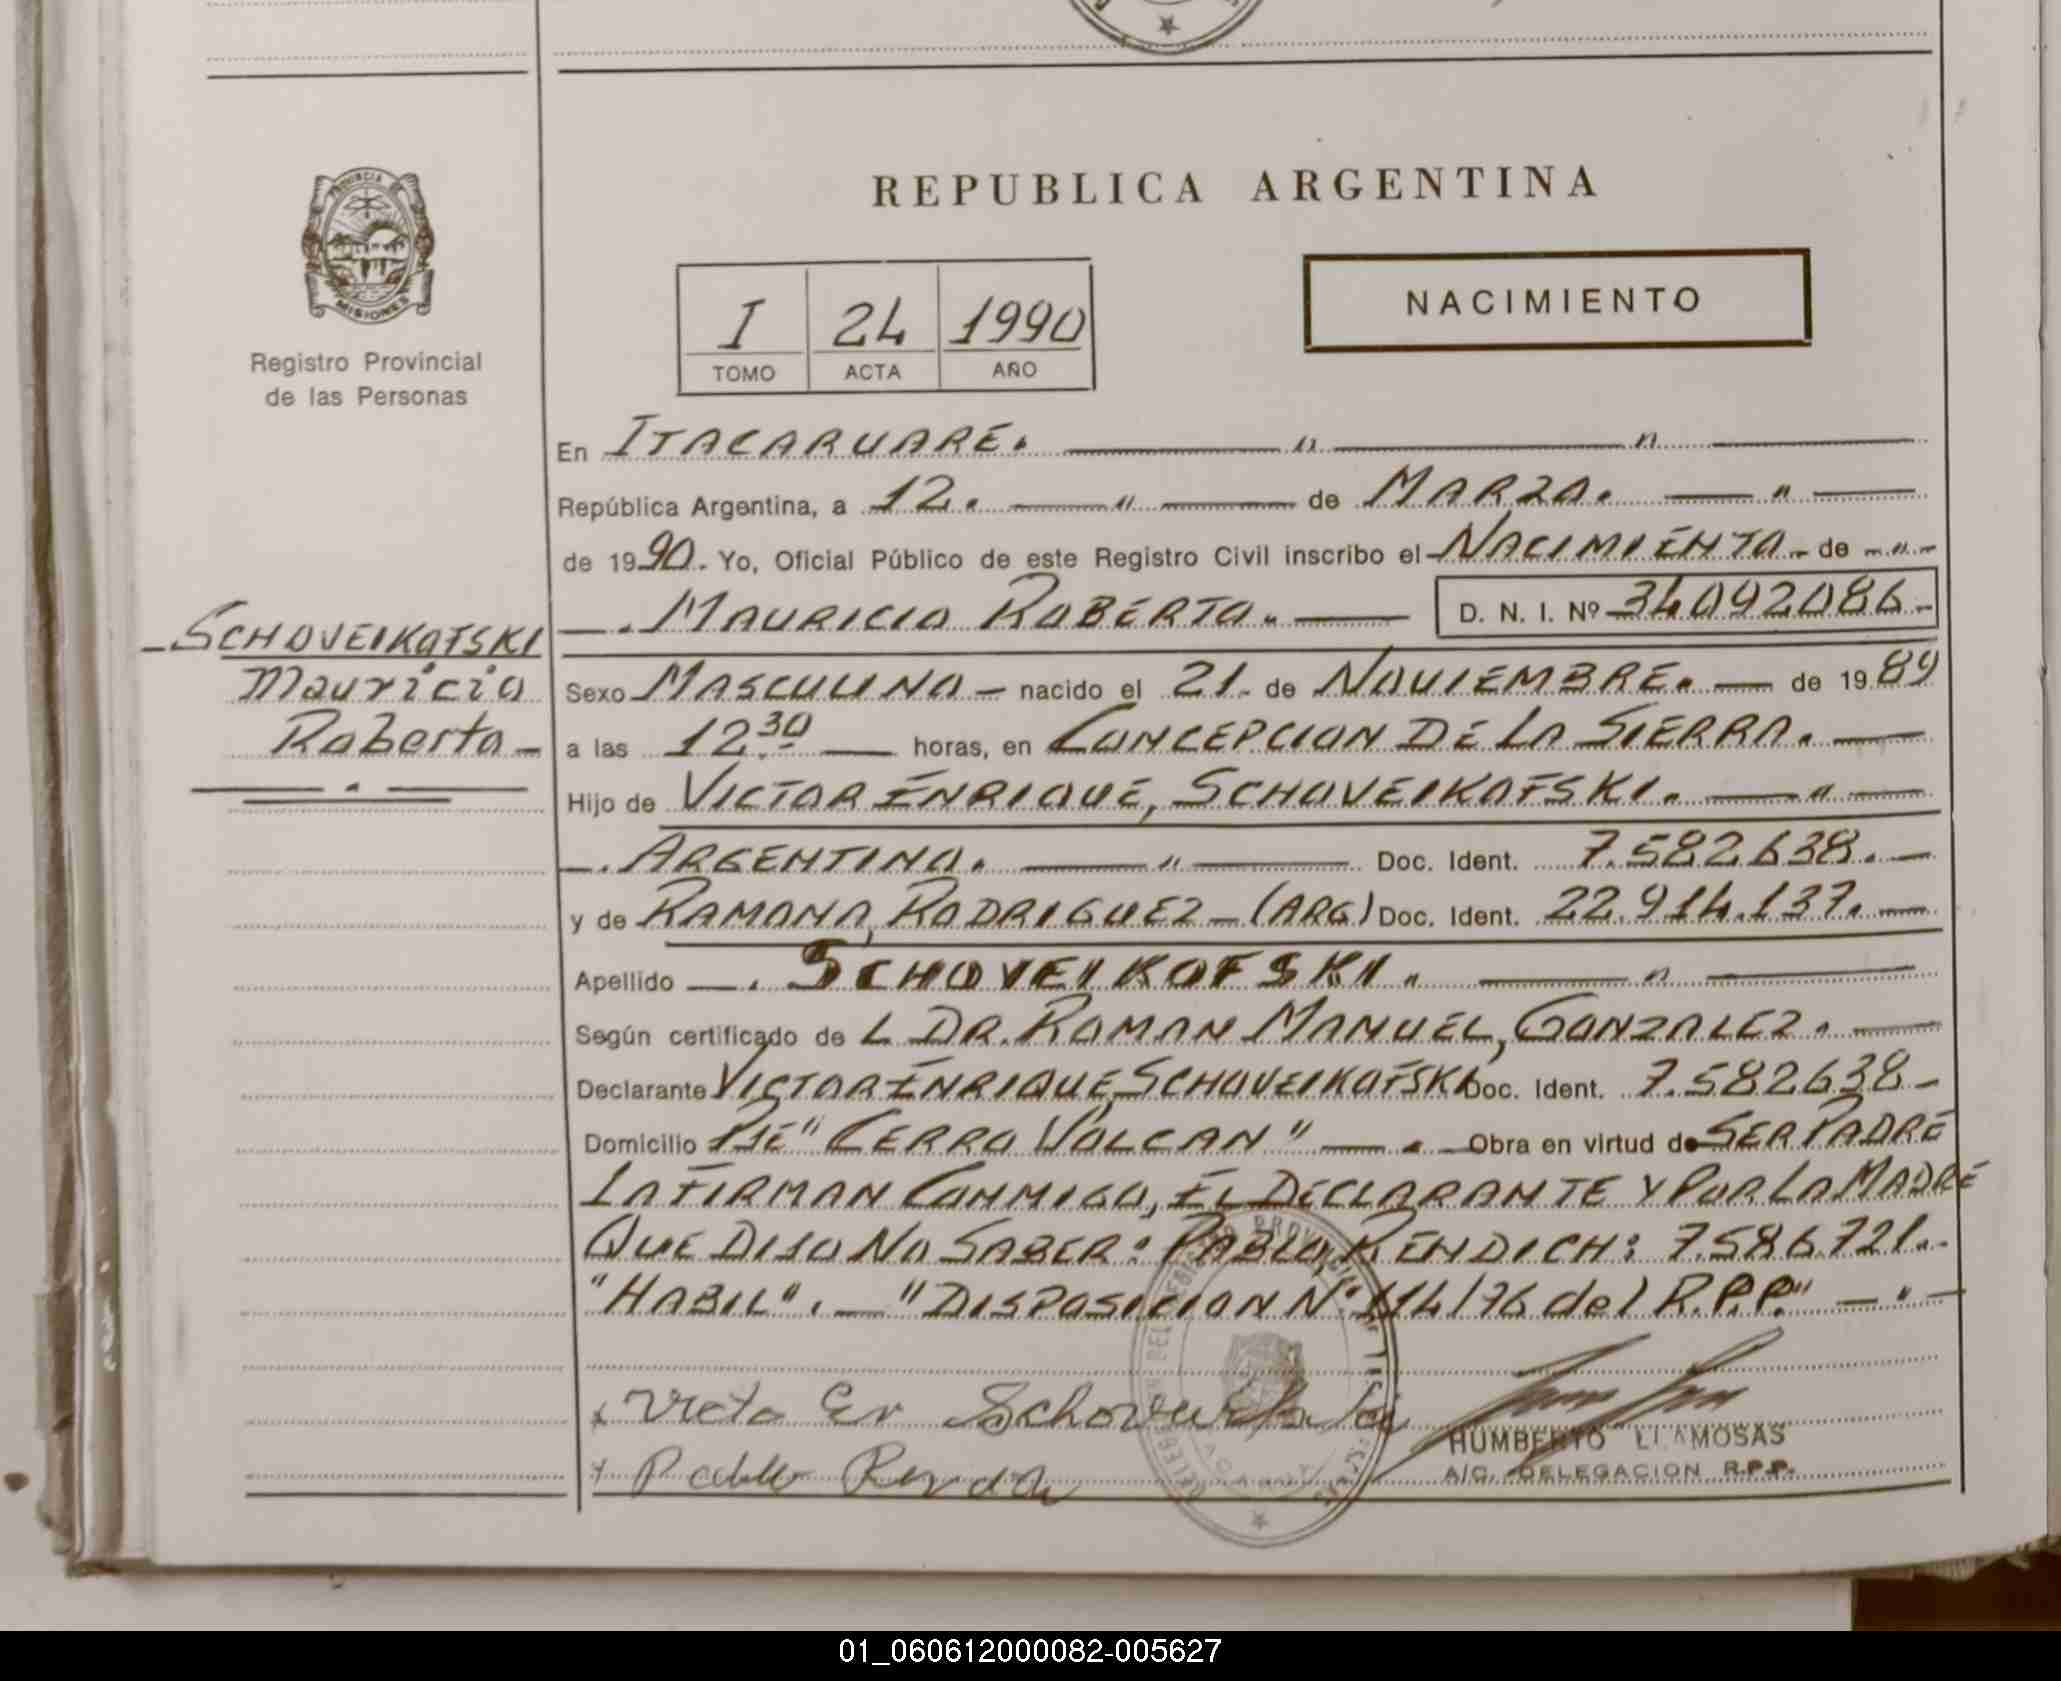 REPUBLICA ARGENTINA
PROVINCIA DE
MISIONES
Registro Provincial
de las Personas
I 24 1990
TOMO ACTA AÑO
NACIMIENTO
En ITACARUARE.
República Argentina, a 12. de MARZO.
de 1990. Yo, Oficial Público de este Registro Civil inscribo el NACIMIENTO de
MAURICIO ROBERTO. D. N. I. Nº 34092086
SCHOVEIKOFSKI
Mauricio
Roberto
Sexo MASCULINO nacido el 21 de NOVIEMBRE. de 1989
a las 12.30 horas, en CONCEPCION DE LA SIERRA.
Hijo de VICTOR ENRIQUE, SCHOVEIKOFSKI.
ARGENTINO. Doc. Ident. 7.582.638.
y de RAMONA, RODRIGUEZ (ARG) Doc. Ident. 22.914.137.
Apellido SCHOVEIKOFSKI.
Según certificado de L DR. ROMAN MANUEL, GONZALEZ.
Declarante VICTOR ENRIQUE, SCHOVEIKOFSKI Doc. Ident. 7.582.638
Domicilio PJE "CERRO VOLCAN" Obra en virtud de SER PADRE
LA FIRMAN CONMIGO, EL DECLARANTE Y POR LA MADRE
QUE DIJO NO SABER: PABLO, RENDICH: 7.586.721.
"HABIL". "DISPOSICION Nº 114/76 del R.P.P."
HUMBERTO LLAMOSAS
A/C. DELEGACION R.P.P.
01_060612000082-005627